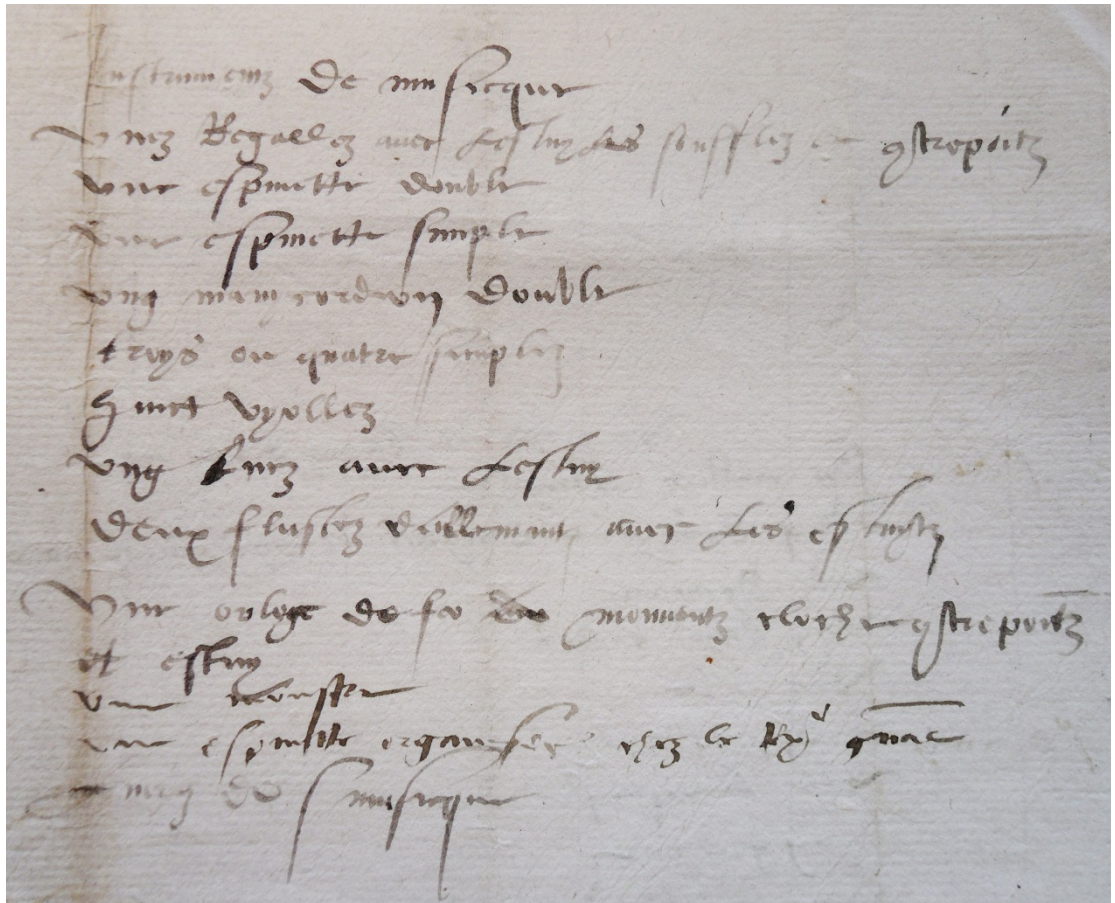 Instrumentz de musicque
Unez Regallez avec Lestuy Les souffletz et contrepoitz
une espinette double
une espinette simple
ung manicordion double
troys ou quatre simples
huict vyollez
ung Lucz avec Lestuy
deux flustez avec Les estuytz
Une orloge de fer mouventz cloche contrepoitz
et estuy
une
une espinette organisee chez le
de musicque